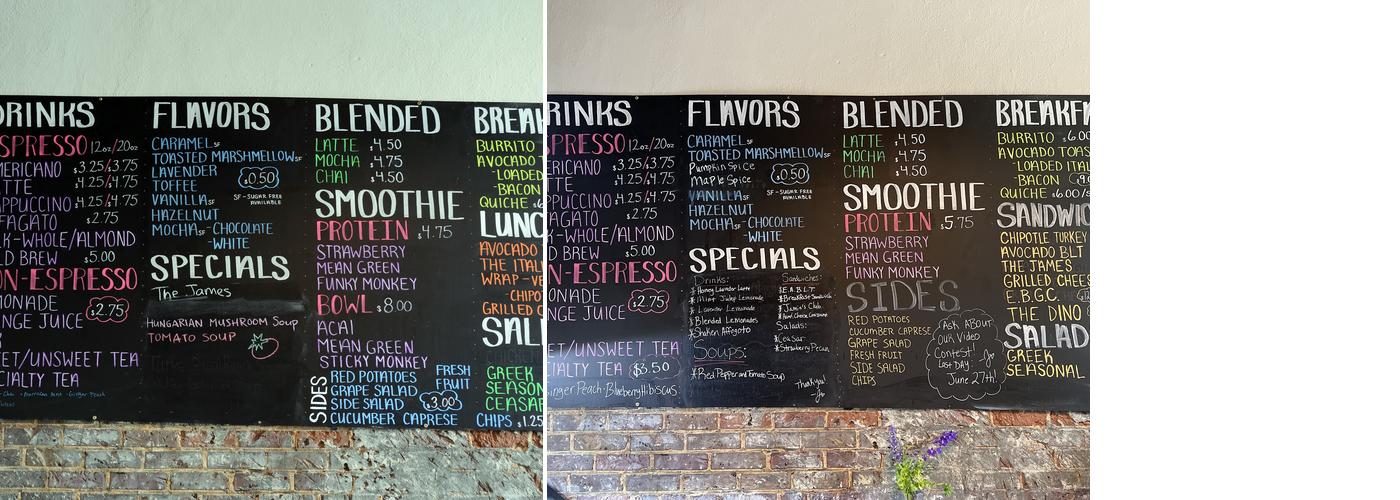 DRINKS
ESPRESSO 12oz/20oz
MERICANO $3.25/3.75
TTE $4.25/4.75
APPUCCINO $4.25/4.75
FAGATO $2.75
LK-WHOLE/ALMOND
D BREW $5.00
ON-ESPRESSO
MONADE
NGE JUICE $2.75
EET/UNSWEET TEA
CIALTY TEA
FLAVORS
CARAMEL SF
TOASTED MARSHMALLOW SF
LAVENDER
TOFFEE $0.50
VANILLA SF
SF-SUGAR FREE
AVAILABLE
HAZELNUT
MOCHA SF-CHOCOLATE
-WHITE
SPECIALS
The James
HUNGARIAN MUSHROOM Soup
TOMATO SOUP
BLENDED
LATTE $4.50
MOCHA $4.75
CHAI $4.50
SMOOTHIE
PROTEIN $4.75
STRAWBERRY
MEAN GREEN
FUNKY MONKEY
BOWL $8.00
ACAI
MEAN GREEN
STICKY MONKEY
SIDES
RED POTATOES
GRAPE SALAD
SIDE SALAD
CUCUMBER CAPRESE
FRESH
FRUIT
$3.00
BREAK
BURRITO
AVOCADO T
-LOADED
-BACON
QUICHE $6
LUNC
AVOCADO
THE ITAL
WRAP-VE
-CHIPO
GRILLED C
SAL
GREEK
SEASON
CEASAR
CHIPS $1.25
RINKS
SPRESSO 12oz/20oz
ERICANO $3.25/3.75
TE $4.25/4.75
PPUCCINO $4.25/4.75
AGATO $2.75
K-WHOLE/ALMOND
D BREW $5.00
N-ESPRESSO
ONADE
NGE JUICE $2.75
ET/UNSWEET TEA
CIALTY TEA $3.50
Ginger Peach·Blueberry Hibiscus
FLAVORS
CARAMEL SF
TOASTED MARSHMALLOW SF
Pumpkin Spice
Maple Spice $0.50
VANILLA SF
SF-SUGAR FREE
AVAILABLE
HAZELNUT
MOCHA SF-CHOCOLATE
-WHITE
SPECIALS
Drinks:
*Honey Lavender Latte
*Mint Julep Lemonade
*Lavender Lemonade
*Blended Lemonades
*Shaken Affogato
Soups:
*Red Pepper and Tomato Soup
Sandwiches:
*E.A.B.L.T
*Breakfast Sandwich
*Jamie's Club
Salads:
*Ceasar
*Strawberry Pecan
Thank you!
BLENDED
LATTE $4.50
MOCHA $4.75
CHAI $4.50
SMOOTHIE
PROTEIN $5.75
STRAWBERRY
MEAN GREEN
FUNKY MONKEY
SIDES
RED POTATOES
CUCUMBER CAPRESE
GRAPE SALAD
FRESH FRUIT
SIDE SALAD
CHIPS
Ask ABOUT
OUR Video
Contest!
Last DAY:
June 27th!
BREAKF
BURRITO $6.00
AVOCADO TOAS
-LOADED
-BACON
QUICHE $6.00/s
SANDWIC
CHIPOTLE TURKEY
AVOCADO BLT
THE JAMES
GRILLED CHEES
E.B.G.C.
THE DINO
SALAD
GREEK
SEASONAL